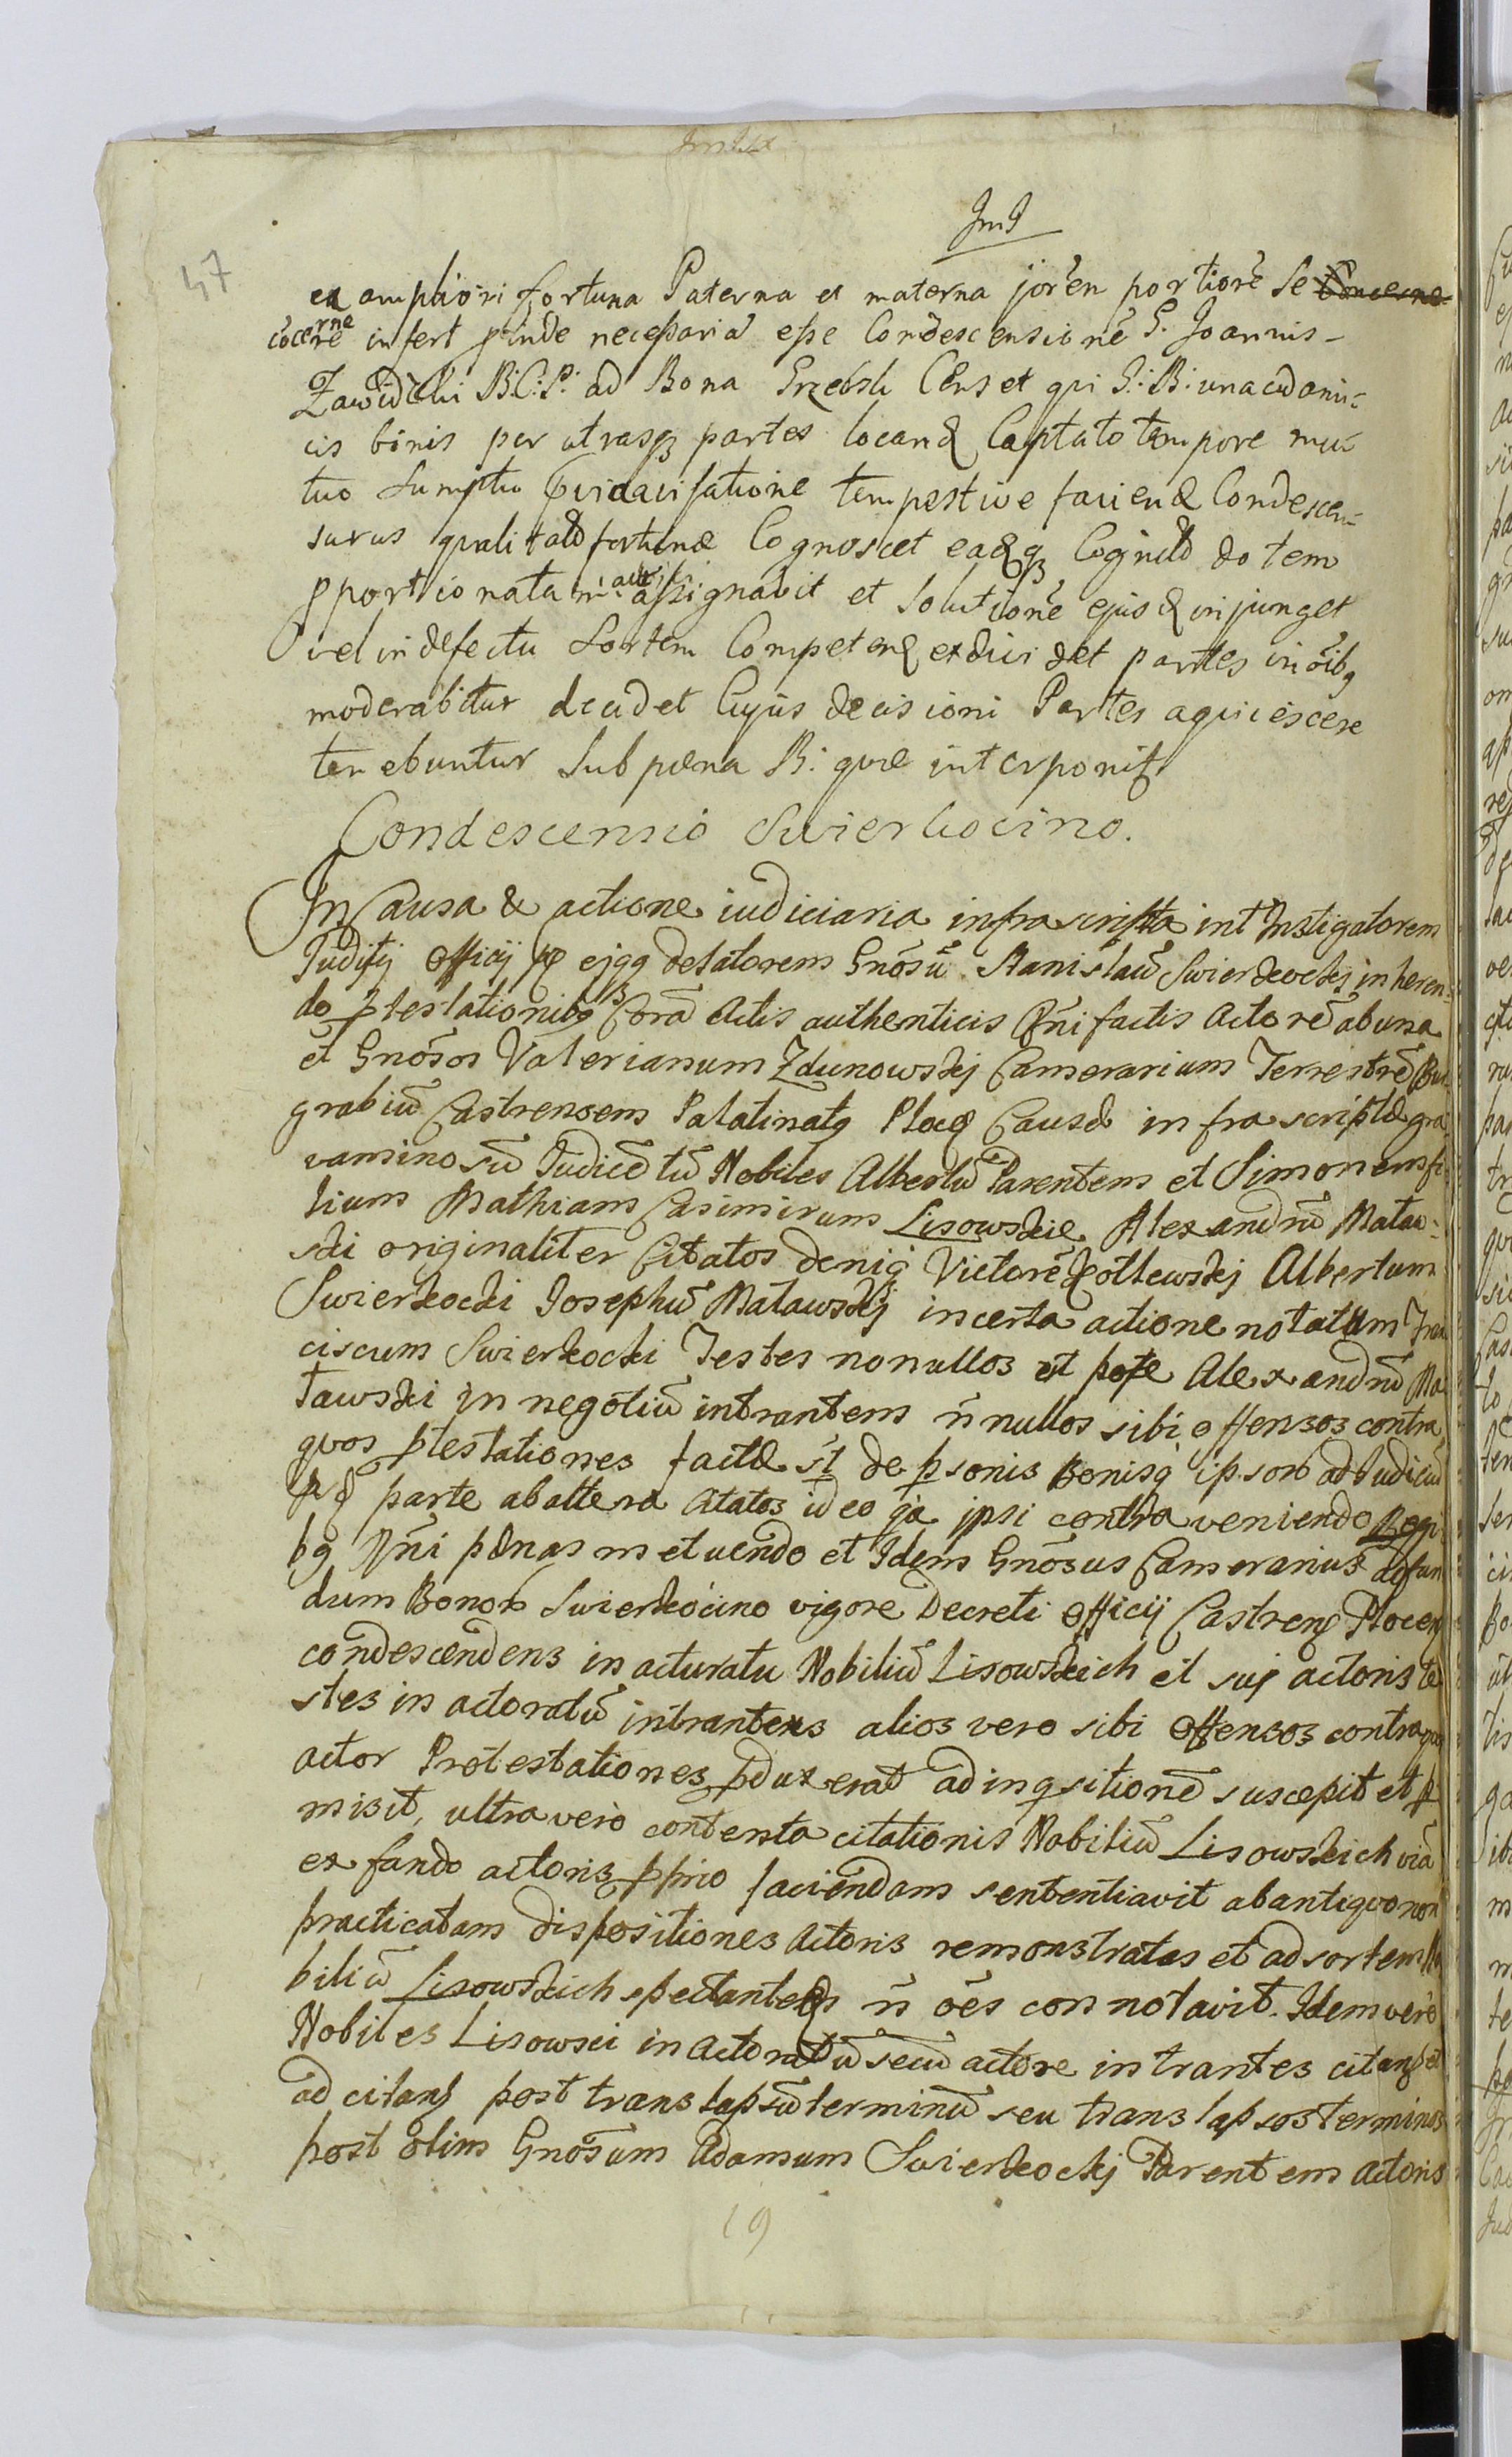 JmJ
47
ex ampliori fortuna Paterna et materna jorẽn portionẽ se Concerne
cõcernẽ infert proinde necessariã esse Condescensionẽ G. Joannis
Zawidzki B: C: P: ad Bona Grzebsk Cens et qui J: B: una cũ ami-
cis binis per utrasq partes locand Captato tempore mu-
tuo sumptu tempestive faciend Condescen-
surus qualitatẽ fortunæ Cognoscet eaqq Cognitâ dotem
pportionatam assignabit et solutionẽ ejusd injunget
vel in defectu sortem Competend exdividet partes in õibq
moderabitur decidet Cujus decisioni Partes aquiescere
tenebuntur sub pœna B: quæ interponit
Condescensio Swierkocino.
In Causa & actione iudiciaria infrascripta int Instigatorem
Judicij Officij pp ejqq delatorem Gnõsũ Stanislaũ Swierkockj inheren-
do ptestationibq Corã Actis authenticis Rni factis Actorẽ ab una
et Gnõsos Valerianum Zdunowskj Camerarium Terrestrẽ Bur
grabiũ Castrensem Palatinatq Ploc Causæ infrascriptæ gra
vaminosũ Judicẽ tũ Nobiles Albertũ Parentem et Simonem fi-
lium Mathiam Casimirum Lisowskie Alexandrũ Mataw-
ski originaliter Citatos deniq Victorẽ Kotlewskj Albertum
Swierkocki Josephũ Matawskj incerta actione notatum Fran
ciscum Swierkocki Testes nonullos ut pote Alexandrũ Ma
tawski in negotiũ intrantem ñ nullos sibi offensos contra
quos ptestationes factæ st de psonis Bonisq ipsorũ ad Judiciũ
parte ab altera Citatos ideo qa ipsi contra veniendo Legi
bq Rni pœnas metuendo et Idem Gnõsus Camerarius ad fun
dum Bonorũ Swierkocino vigore Decreti Officij Castren Plocen
condescendens in acturatu Nobiliũ Lisowskich et suj actoris te
stes in actoratũ intrantens alios vero sibi offensos contra quos
actor Protestationes pduxerat ad inqsitionẽ suscepit et p
misit, ultra vero contenta citationis Nobiliũ Lisowskich viã
ex fando actoris pprio faciendam sententiavit ab antiquo non
practicatam dispositiones Actoris remonstratas et ad sortem No
biliũ Lisowskich spectantes ñ oẽs connotavit. Idem vero
Nobiles Lisowsci in Actoratũ secũ actore intrantes citand et
ad citand post translapsũ terminũ seu translapsos terminos
post olim Gnõsum Adamum Swierkockj Parentem Actoris
19